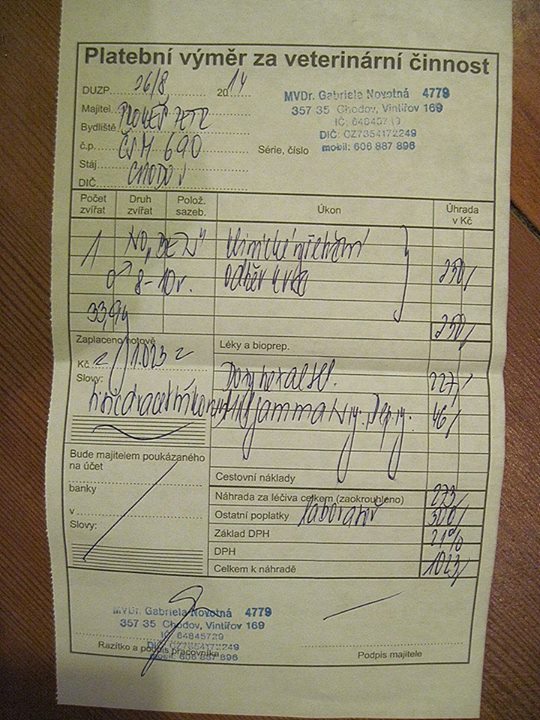 Platební výměr za veterinární činnost
DUZP 26/8 2014
MVDr. Gabriela Novotná 4779
357 35 Chodov, Vintířov 169
IČ: 64845729
DIČ: CZ7354172249
mobil: 606 887 896
Majitel
Bydliště
č.p. ČSM 690
Série, číslo
Stáj CHODOV
DIČ
Počet zvířat Druh zvířat Polož. sazeb. Úkon Úhrada v Kč
1 Klinické 250/
♂ 8-10r. odběr krve
250/
Zaplaceno hotově Léky a bioprep.
Kč = 1.023 =
Slovy: 227/
46/
Bude majitelem poukázaného
na účet
banky
Cestovní náklady
v
Náhrada za léčiva celkem (zaokrouhleno) 273/
Slovy:
Ostatní poplatky laboratoř 500/
Základ DPH 21%
DPH
Celkem k náhradě 1023/
MVDr. Gabriela Novotná 4779
357 35 Chodov, Vintířov 169
IČ: 64845729
DIČ: CZ7354172249
mobil: 606 887 896
Razítko a podpis pracovníka
Podpis majitele